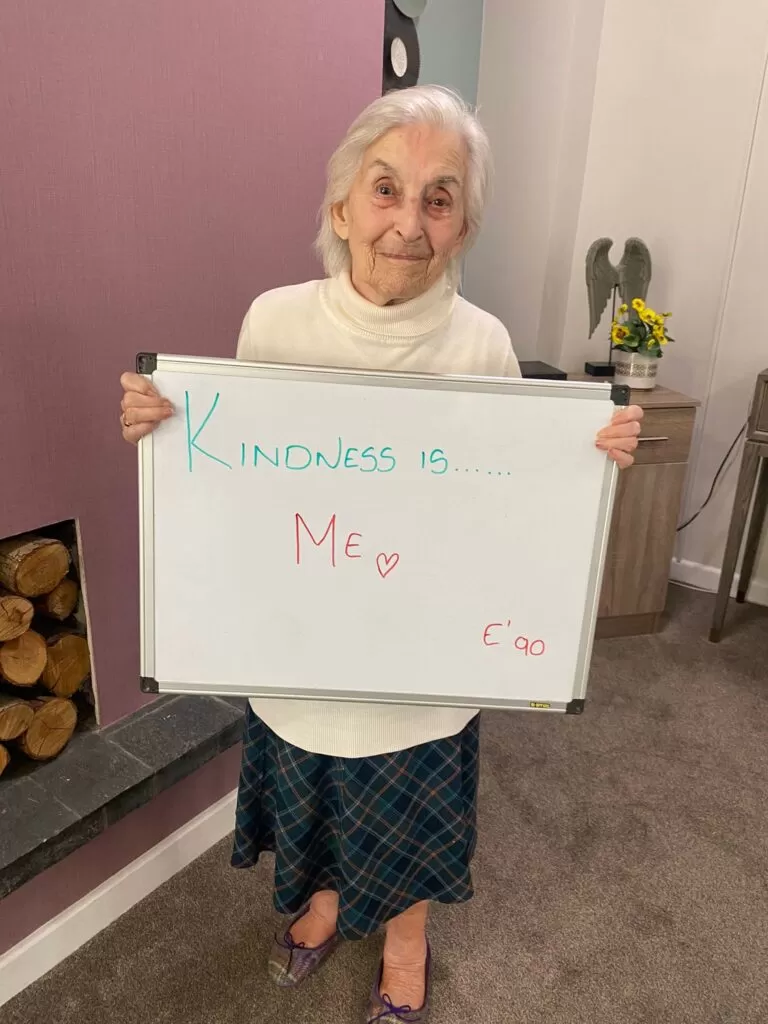 Kindness is......
Me ♡
E'90